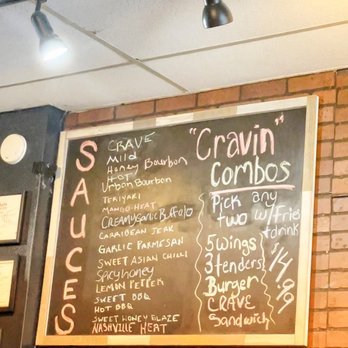 SAUCES
CRAVE
Mild
Honey Bourbon
HOT
Urban Bourbon
TERIYAKI
MANGO HEAT
CREAMY Garlic Buffalo
CARRIBEAN JERK
GARLIC PARMESAN
SWEET ASIAN CHILI
SPicy honey
LEMON PEPPER
SWEET BBQ
HOT BBQ
SWEET HONEY GLAZE
NASHVILLE HEAT
"Cravin"
Combos
Pick any
two w/fries
+drink
$14.99
5 wings
3 tenders
Burger
CRAVE
Sandwich